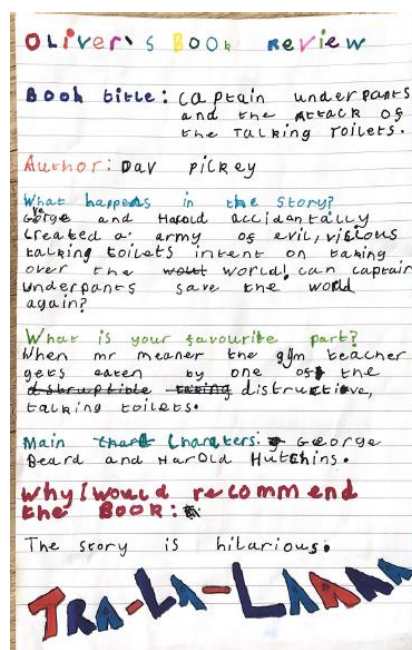 Oliver's Book Review
Book title: Captain underpants
and the Attack of
the Talking Toilets.
Author: Dav pilkey
What happens in the story?
George and Harold accidantally
created a army of evil, vicious
talking toilets intent on taking
over the world! can captain
underpants save the world
again?
What is your favourite part?
When mr meaner the gym teacher
gets eaten by one of the
distructive,
talking toilets.
Main Charaters: George
Beard and Harold Hutchins.
Why I would recommend
the Book:
The story is hilarious.
TRA-LA-LAAAA